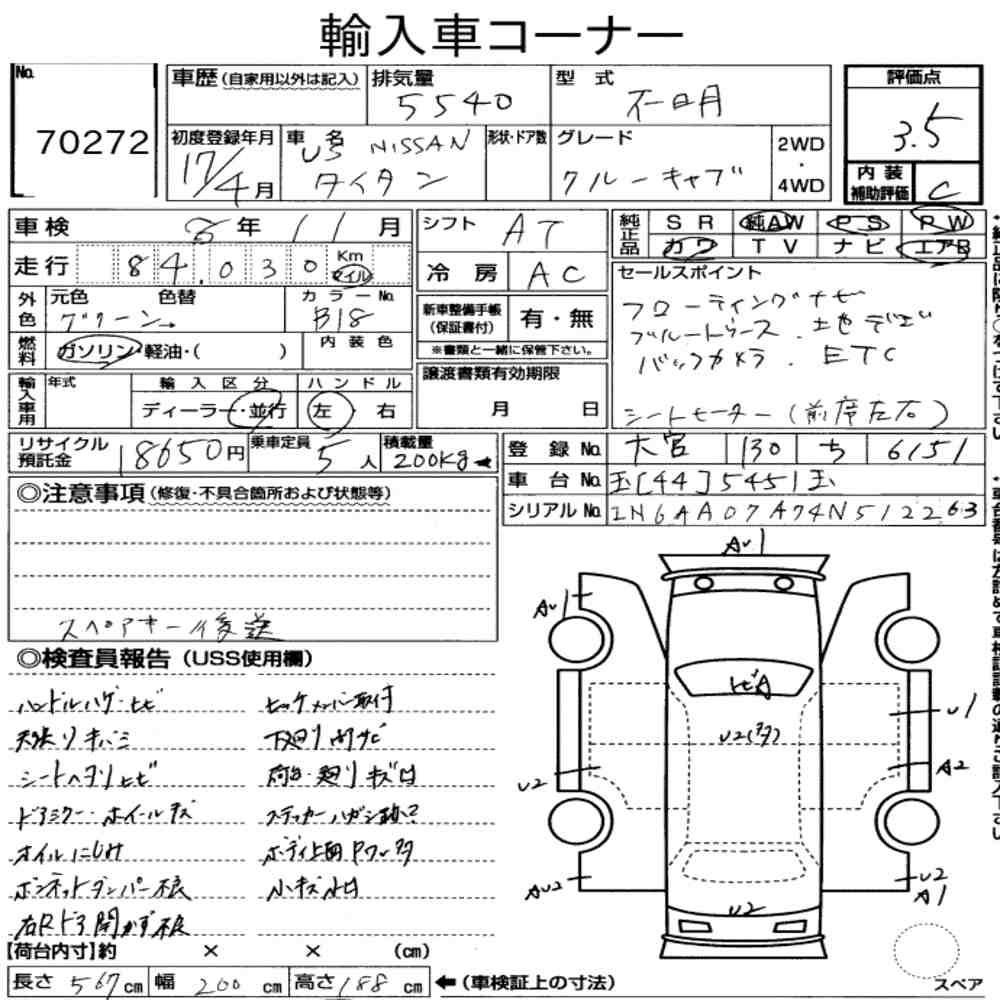 輸入車コーナー
No.
70272
車歴(自家用以外は記入)
排気量
5540
型 式
不明
評価点
3.5
初度登録年月
17/4月
車 名
US NISSAN
タイタン
形状・ドア数
グレード
クルーキャブ
2WD
・
4WD
内 装
補助評価
C
車検
8年 11月
シフト
AT
純正品
SR 純AW PS PW
カワ TV ナビ エアB
走行
84,030
Km
マイル
冷 房
AC
セールスポイント
フローティングナビ
ブルートゥース. 地デジ
バックカメラ. ETC
シートモーター(前席左右)
外色
元色 色替
グリーン→
カラーNo.
B18
新車整備手帳
(保証書付)
有・無
※書類と一緒に保管下さい。
燃料
ガソリン・軽油・( )
内 装 色
輸入車用
年式
輸 入 区 分
ディーラー・並行
ハ ン ド ル
左 ・ 右
譲渡書類有効期限
月 日
リサイクル
預託金
18650円
乗車定員
5人
積載量
200Kg
登 録 No.
大宮 130 ち 6151
車 台 No.
[44]5451
シリアル No.
1N6AA07A74N512263
◎注意事項(修復・不具合箇所および状態等)
スペアキー後送
◎検査員報告(USS使用欄)
ハンドルハゲ・ヒビ
天張りキバミ
シートヘタリヒビ
ドアミラー・ホイールキズ
オイルにじみ
ボンネットダンパー不良
右Rドア開かず不良
ヒッチメンバー取付
下廻りサビ
荷台・廻りキズ凹
ステッカーハガシ跡
ボディ上面
小キズ凹
Aw1
Aw1
ヒビA
U2(多)
U1
U2
A2
AU2
U2
U2
A1
【荷台内寸】約 × × (cm)
長さ 567cm 幅 200cm 高さ 188cm
←(車検証上の寸法)
スペア